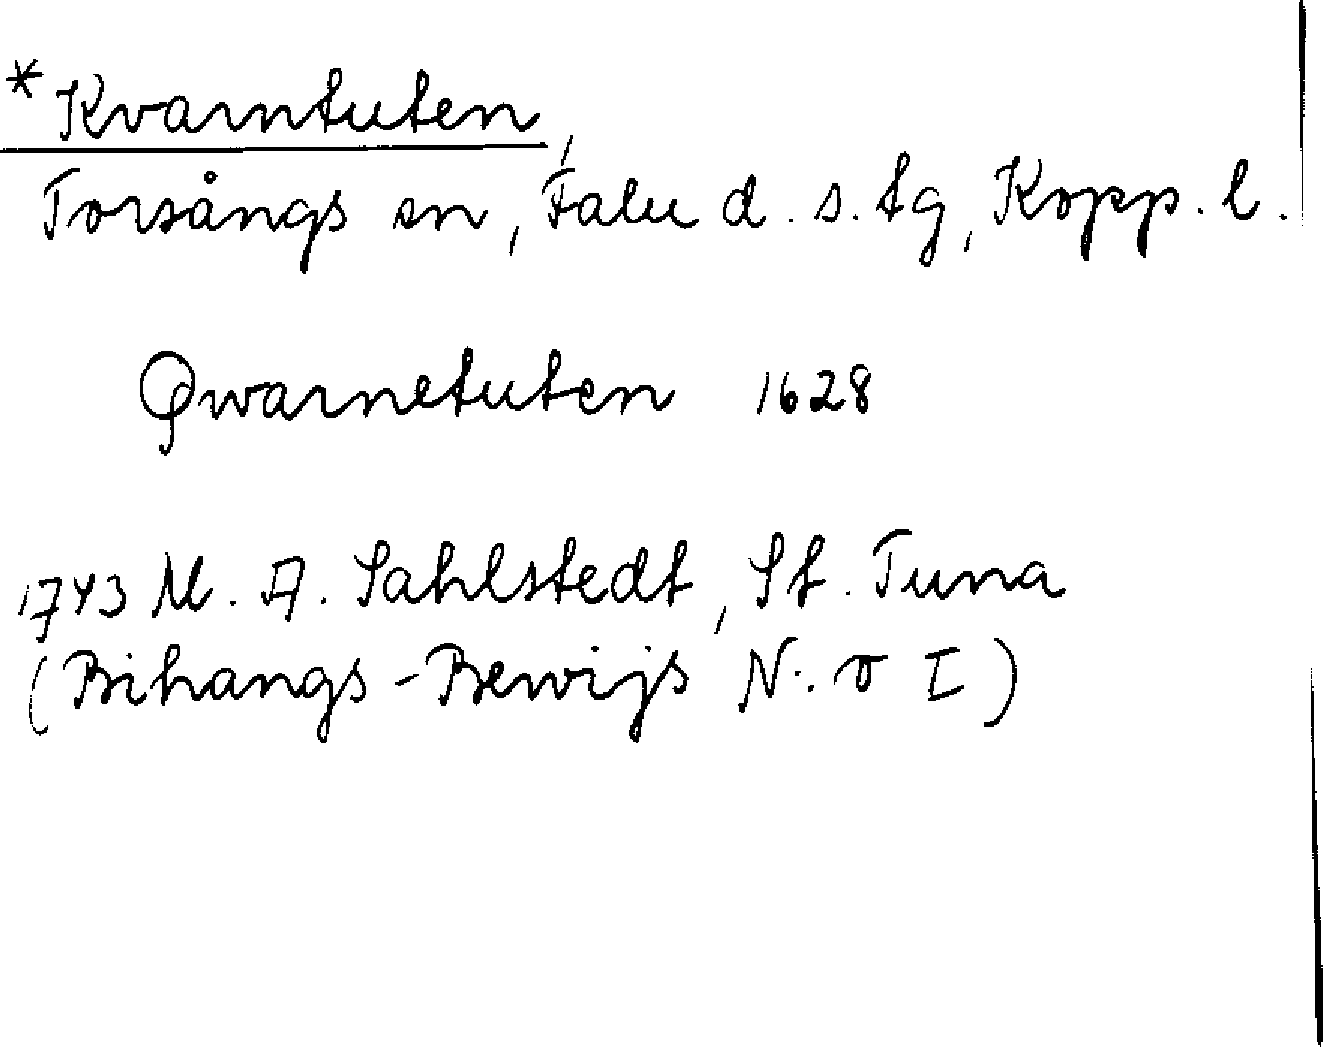 *Kvarntuten,
Torsångs sn, Falu d. s. tg, Kopp. l.
Qwarnetuten 1628
1743 M. A. Sahlstedt, St. Tuna
(Bihangs-Bewijs N:o I)